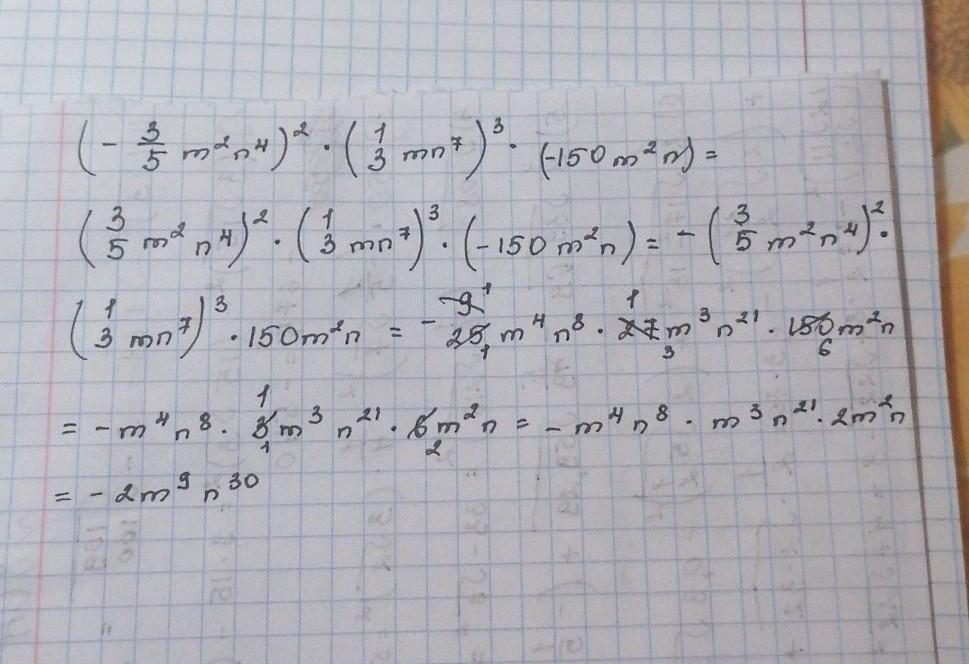 (- 3/5 m²n⁴)² · (1/3 mn⁷)³ · (-150m²n) =
(3/5 m²n⁴)² · (1/3 mn⁷)³ · (-150m²n) = - (3/5 m²n⁴)² ·
(1/3 mn⁷)³ · 150m²n = - 9 1/25 1 m⁴n⁸ · 1/27 3 m³n²¹ · 150 6 m²n
= - m⁴n⁸ · 1/3 1 m³n²¹ · 6 2 m²n = - m⁴n⁸ · m³n²¹ · 2m²n
= - 2m⁹n³⁰